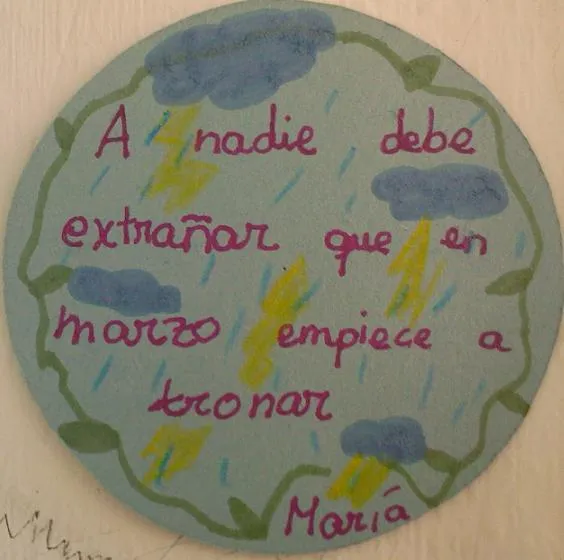 A nadie debe
extrañar que en
marzo empiece a
tronar
María